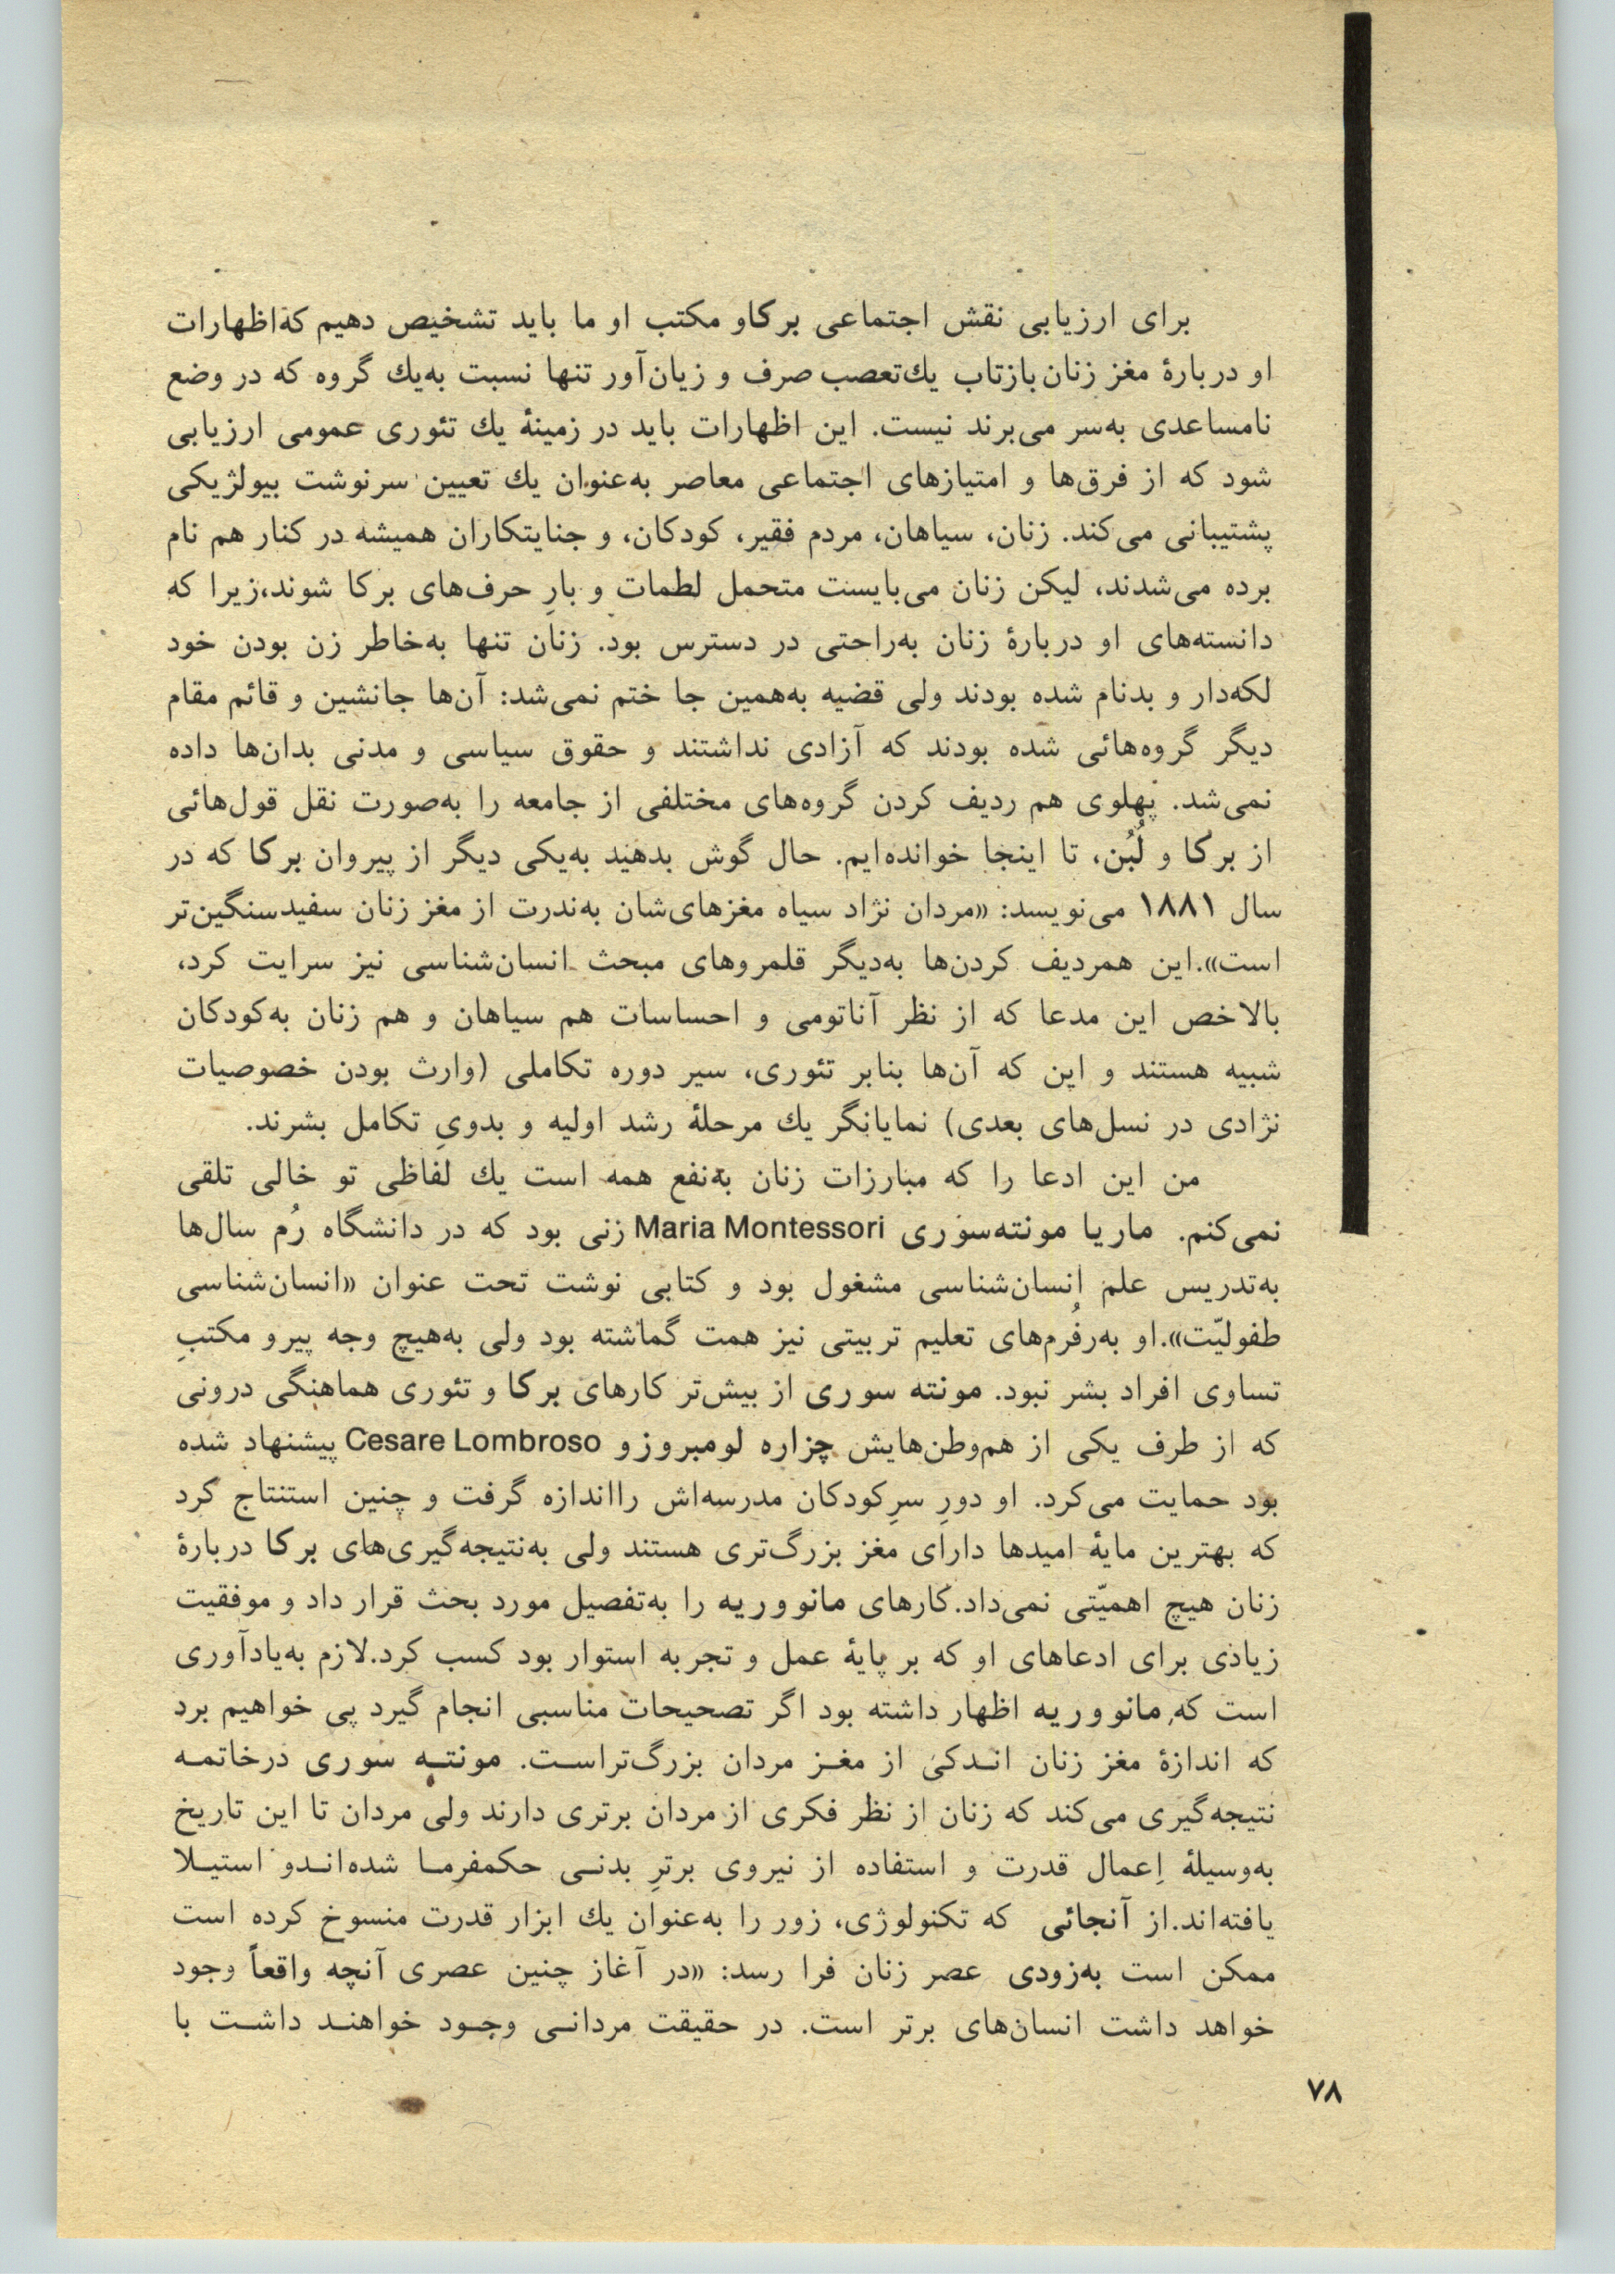 برای ارزیابی نقش اجتماعی برکاو مکتب او ما باید تشخیص دهیم که‌اظهارات
او دربارهٔ مغز زنان بازتاب یك‌تعصب صرف و زیان‌آور تنها نسبت به‌یك گروه که در وضع
نامساعدی به‌سر می‌برند نیست. این اظهارات باید در زمینهٔ یك تئوری عمومی ارزیابی
شود که از فرق‌ها و امتیازهای اجتماعی معاصر به‌عنوان یك تعیین سرنوشت بیولژیکی
پشتیبانی می‌کند. زنان، سیاهان، مردم فقیر، کودکان، و جنایتکاران همیشه در کنار هم نام
برده می‌شدند، لیکن زنان می‌بایست متحمل لطمات و بارِ حرف‌های برکا شوند،زیرا که
دانسته‌های او دربارهٔ زنان به‌راحتی در دسترس بود. زنان تنها به‌خاطر زن بودن خود
لکه‌دار و بدنام شده بودند ولی قضیه به‌همین جا ختم نمی‌شد: آن‌ها جانشین و قائم مقام
دیگر گروه‌هائی شده بودند که آزادی نداشتند و حقوق سیاسی و مدنی بدان‌ها داده
نمی‌شد. پهلوی هم ردیف کردن گروه‌های مختلفی از جامعه را به‌صورت نقل قول‌هائی
از برکا و لُبُن، تا اینجا خوانده‌ایم. حال گوش بدهید به‌یکی دیگر از پیروان برکا که در
سال ۱۸۸۱ می‌نویسد: «مردان نژاد سیاه مغزهای‌شان به‌ندرت از مغز زنان سفیدسنگین‌تر
است».این همردیف کردن‌ها به‌دیگر قلمروهای مبحث انسان‌شناسی نیز سرایت کرد،
بالاخص این مدعا که از نظر آناتومی و احساسات هم سیاهان و هم زنان به‌کودکان
شبیه هستند و این که آن‌ها بنابر تئوری، سیر دوره تکاملی (وارث بودن خصوصیات
نژادی در نسل‌های بعدی) نمایانگر یك مرحلهٔ رشد اولیه و بدویِ تکامل بشرند.
من این ادعا را که مبارزات زنان به‌نفع همه است یك لفاظی تو خالی تلقی
نمی‌کنم. ماریا مونته‌سوری Maria Montessori زنی بود که در دانشگاه رُم سال‌ها
به‌تدریس علم اِنسان‌شناسی مشغول بود و کتابی نوشت تحت عنوان «انسان‌شناسی
طفولیّت».او به‌رفُرم‌های تعلیم تربیتی نیز همت گماشته بود ولی به‌هیچ وجه پیرو مکتبِ
تساوی افراد بشر نبود. مونته سوری از بیش‌تر کارهای برکا و تئوری هماهنگی درونی
که از طرف یکی از هم‌وطن‌هایش چزاره لومبروزو Cesare Lombroso پیشنهاد شده
بود حمایت می‌کرد. او دورِ سرِکودکان مدرسه‌اش رااندازه گرفت و چنین استنتاج کرد
که بهترین مایهٔ امیدها دارای مغز بزرگ‌تری هستند ولی به‌نتیجه‌گیری‌های برکا دربارهٔ
زنان هیچ اهمیّتی نمی‌داد.کارهای مانووریه را به‌تفصیل مورد بحث قرار داد و موفقیت
زیادی برای ادعاهای او که بر پایهٔ عمل و تجربه استوار بود کسب کرد.لازم به‌یادآوری
است که مانووریه اظهار داشته بود اگر تصحیحات مناسبی انجام گیرد پی خواهیم برد
که اندازهٔ مغز زنان انـدکی از مغـز مردان بزرگ‌تراسـت. مونتـه سوری درخاتمـه
نتیجه‌گیری می‌کند که زنان از نظر فکری از مردان برتری دارند ولی مردان تا این تاریخ
به‌وسیلهٔ اِعمال قدرت و استفاده از نیروی برترِ بدنـی حکمفرمـا شده‌انـدو استیـلا
یافته‌اند.از آنجائی که تکنولوژی، زور را به‌عنوان یك ابزار قدرت منسوخ کرده است
ممکن است به‌زودی عصر زنان فرا رسد: «در آغاز چنین عصری آنچه واقعاً وجود
خواهد داشت انسان‌های برتر است. در حقیقت مردانـی وجـود خواهنـد داشـت با
۷۸